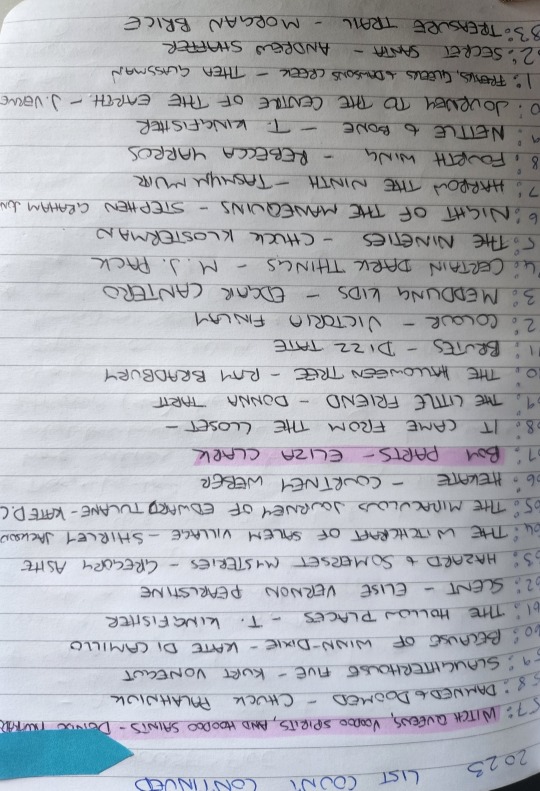 2023 LIST COUNT CONTINUED
57: WITCH QUEENS, VOODOO SPIRITS, AND HOODOO SAINTS - DENISE
58: DAMNED & DOOMED - CHUCK PALAHNIUK
59: SLAUGHTERHOUSE FIVE - KURT VONEGUT
60: BECAUSE OF WINN-DIXIE - KATE DI CAMILLO
61: THE HOLLOW PLACES - T. KINGFISHER
62: SCENT - ELISE VERNON PEARLSTINE
63: HAZARD & SOMERSET MYSTERIES - GREGORY ASHE
64: THE WITCHCRAFT OF SALEM VILLAGE - SHIRLEY JACKSON
65: THE MIRACULOUS JOURNEY OF EDWARD TULANE - KATE D.C
66: HEKATE - COURTNEY WEBER
67: BOY PARTS - ELIZA CLARK
68: IT CAME FROM THE CLOSET -
69: THE LITTLE FRIEND - DONNA TART
70: THE HALLOWEEN TREE - RAY BRADBURY
71: BRUTES - DIZZ TATE
72: COLOUR - VICTORIA FINLAY
73: MEDDLING KIDS - EDGAR CANTERO
74: CERTAIN DARK THINGS - M.J. PACK
75: THE NINETIES - CHUCK KLOSTERMAN
76: NIGHT OF THE MANEQUINS - STEPHEN GRAHAM JON
77: HARROW THE NINTH - TASMYN MUIR
78: FOURTH WING - REBECCA YARROS
79: NETTLE & BONE - T. KINGFISHER
80: JOURNEY TO THE CENTRE OF THE EARTH - J. VERNE
81: FRENCHS, QUEENS & DAWSONS CREEK - THEA GLASSMAN
82: SECRET SANTA - ANDREW SHAFFER
83: TREASURE TRAIL - MORGAN BRICE